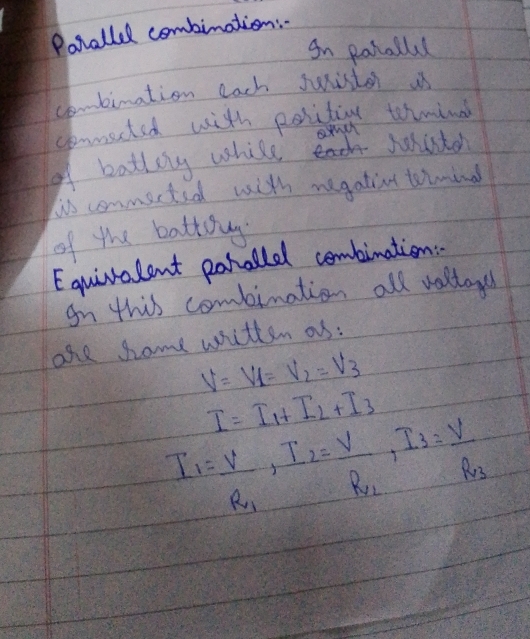 Parallel combination:-
In parallel
combination each resistor is
connected with positive terminal
of battery while other resistor
is connected with negative terminal
of the battery.
Equivalent parallel combination:-
In this combination all voltages
are same written as:
V = V1 = V2 = V3
I = I1 + I2 + I3
I1 = V/R1 , I2 = V/R2 , I3 = V/R3